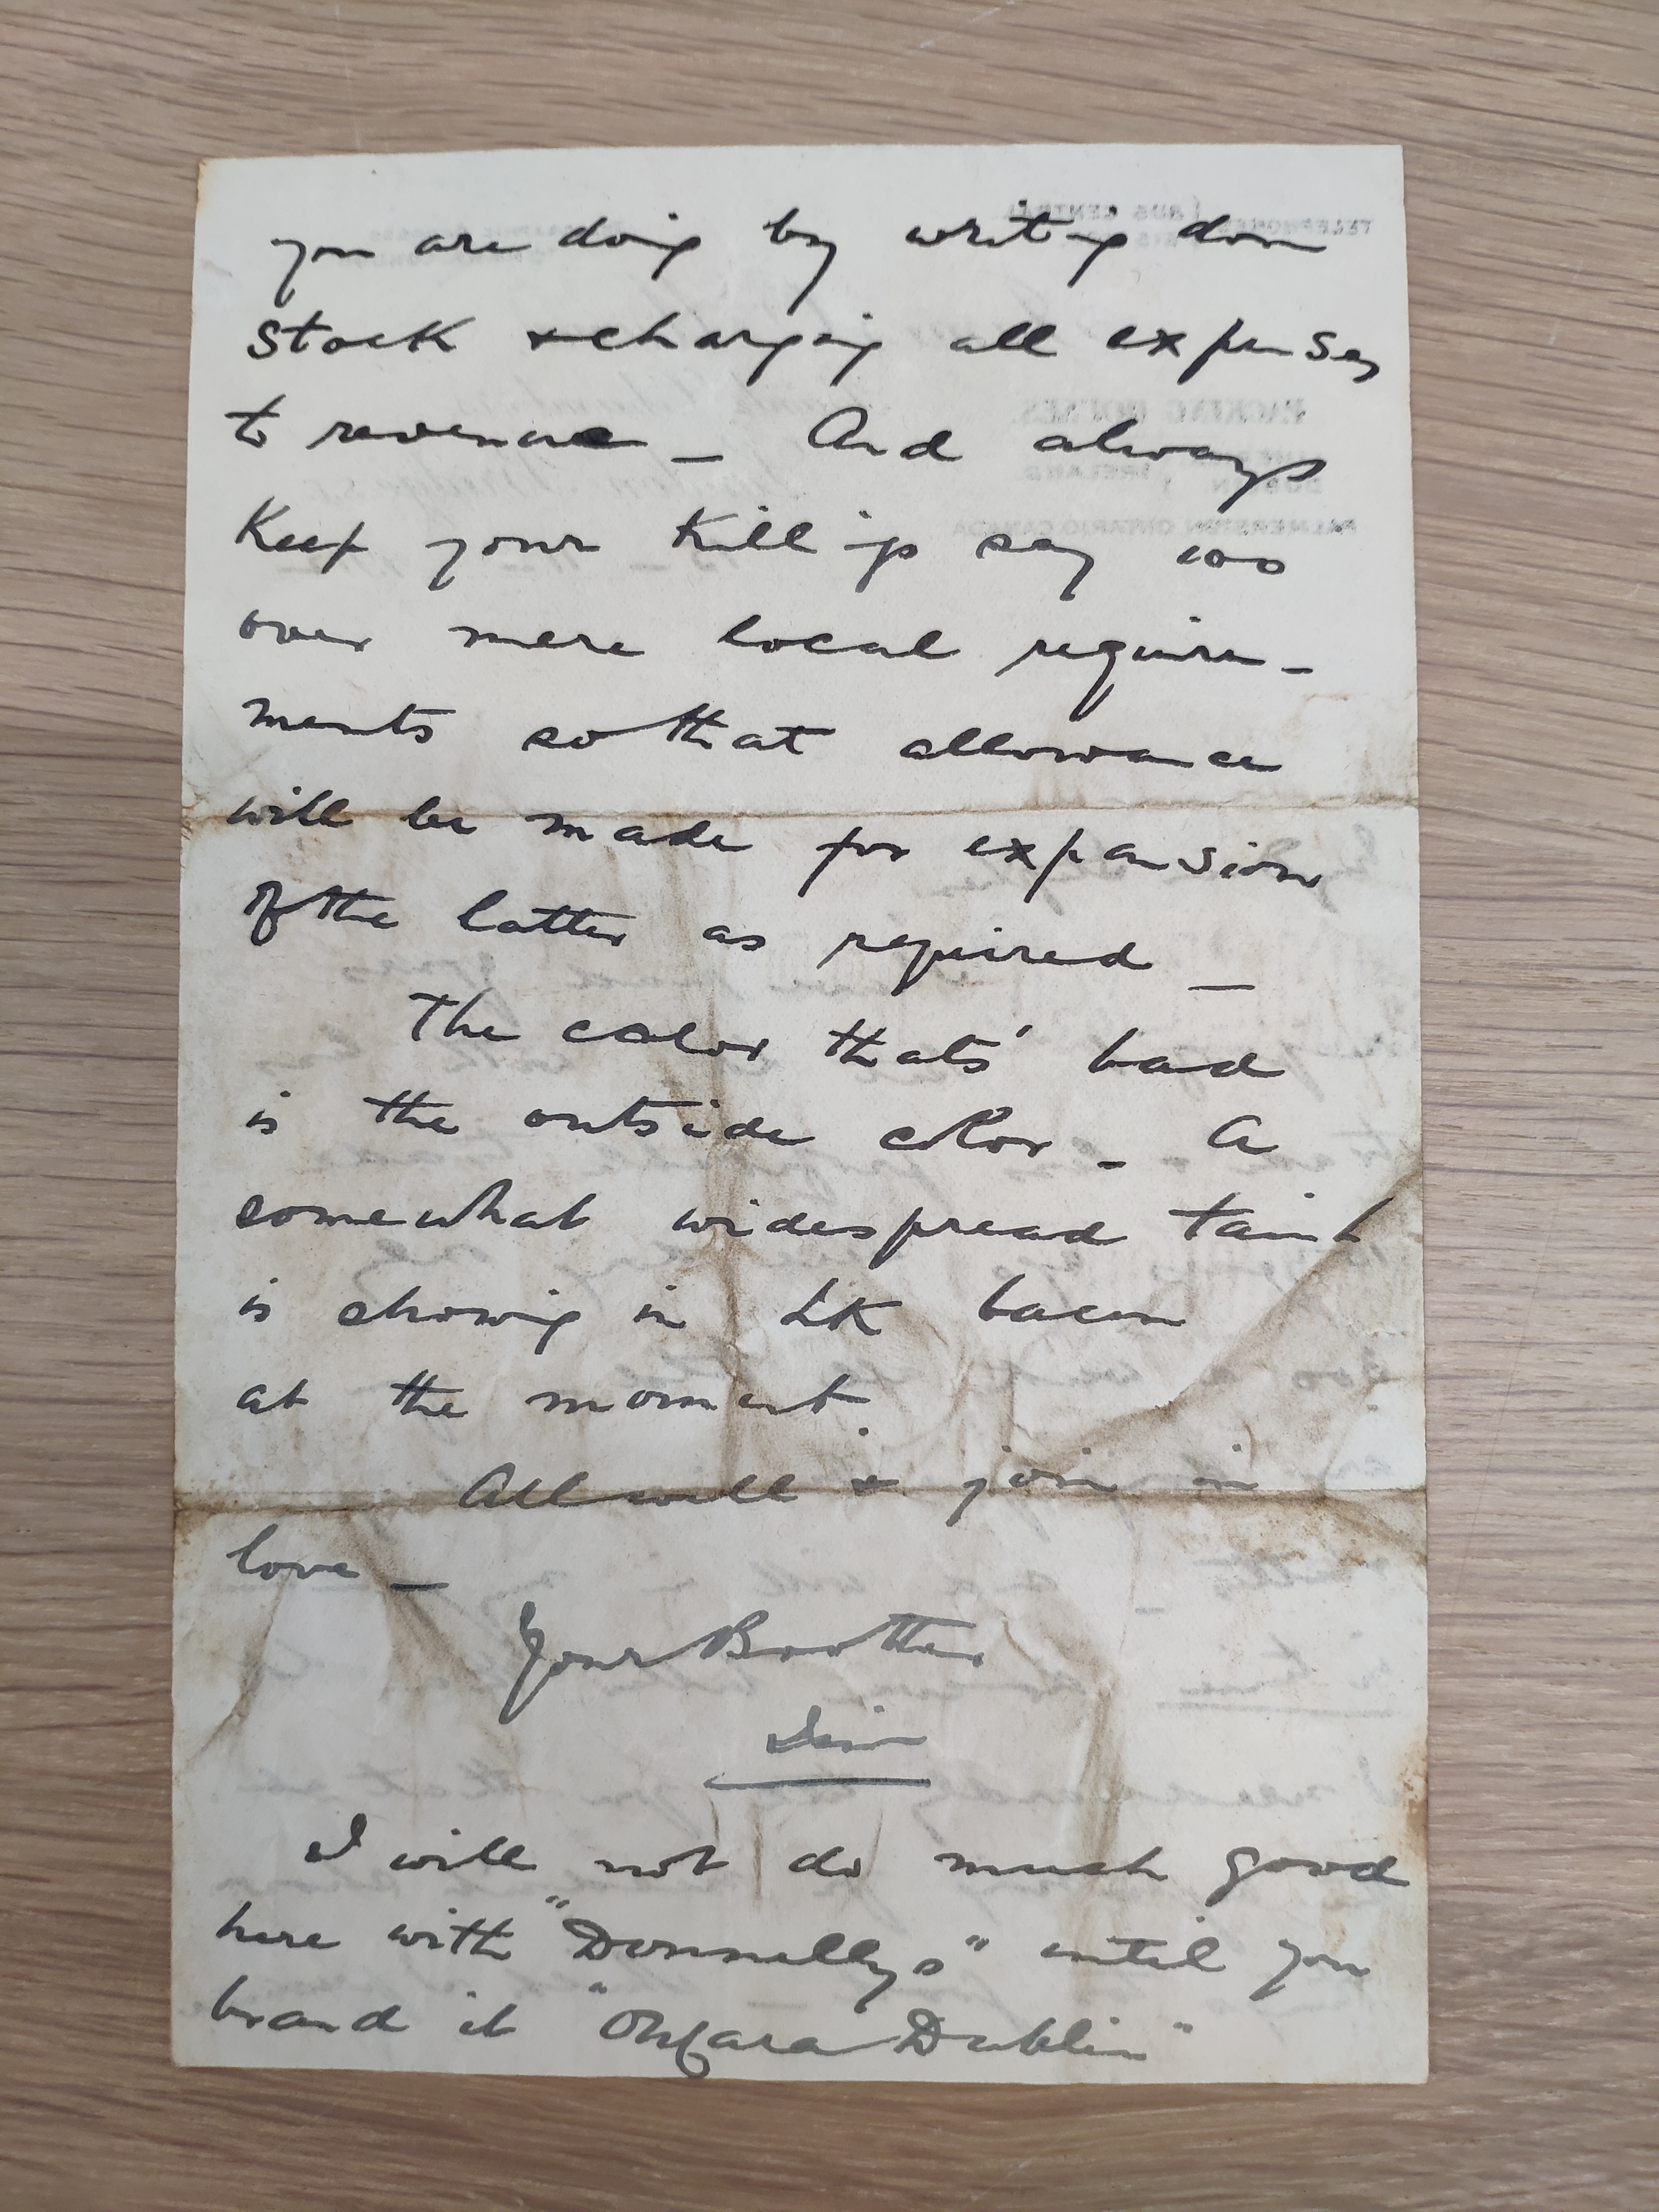 you are doing by writing down
stock & charging all expenses
to revenue _ And always
Keep your killings say 100
over mere local require_
ments so that allowance
will be made for expansion
of the latter as required _
The color thats' bad
is the outside color _ A
somewhat widespread taint
is showing in LK bacon
at the moment.
All well & join in
love _
Your Brother
Jim
I will not do much good
here with "Donnellys" until you
brand it "OMara Dublin"